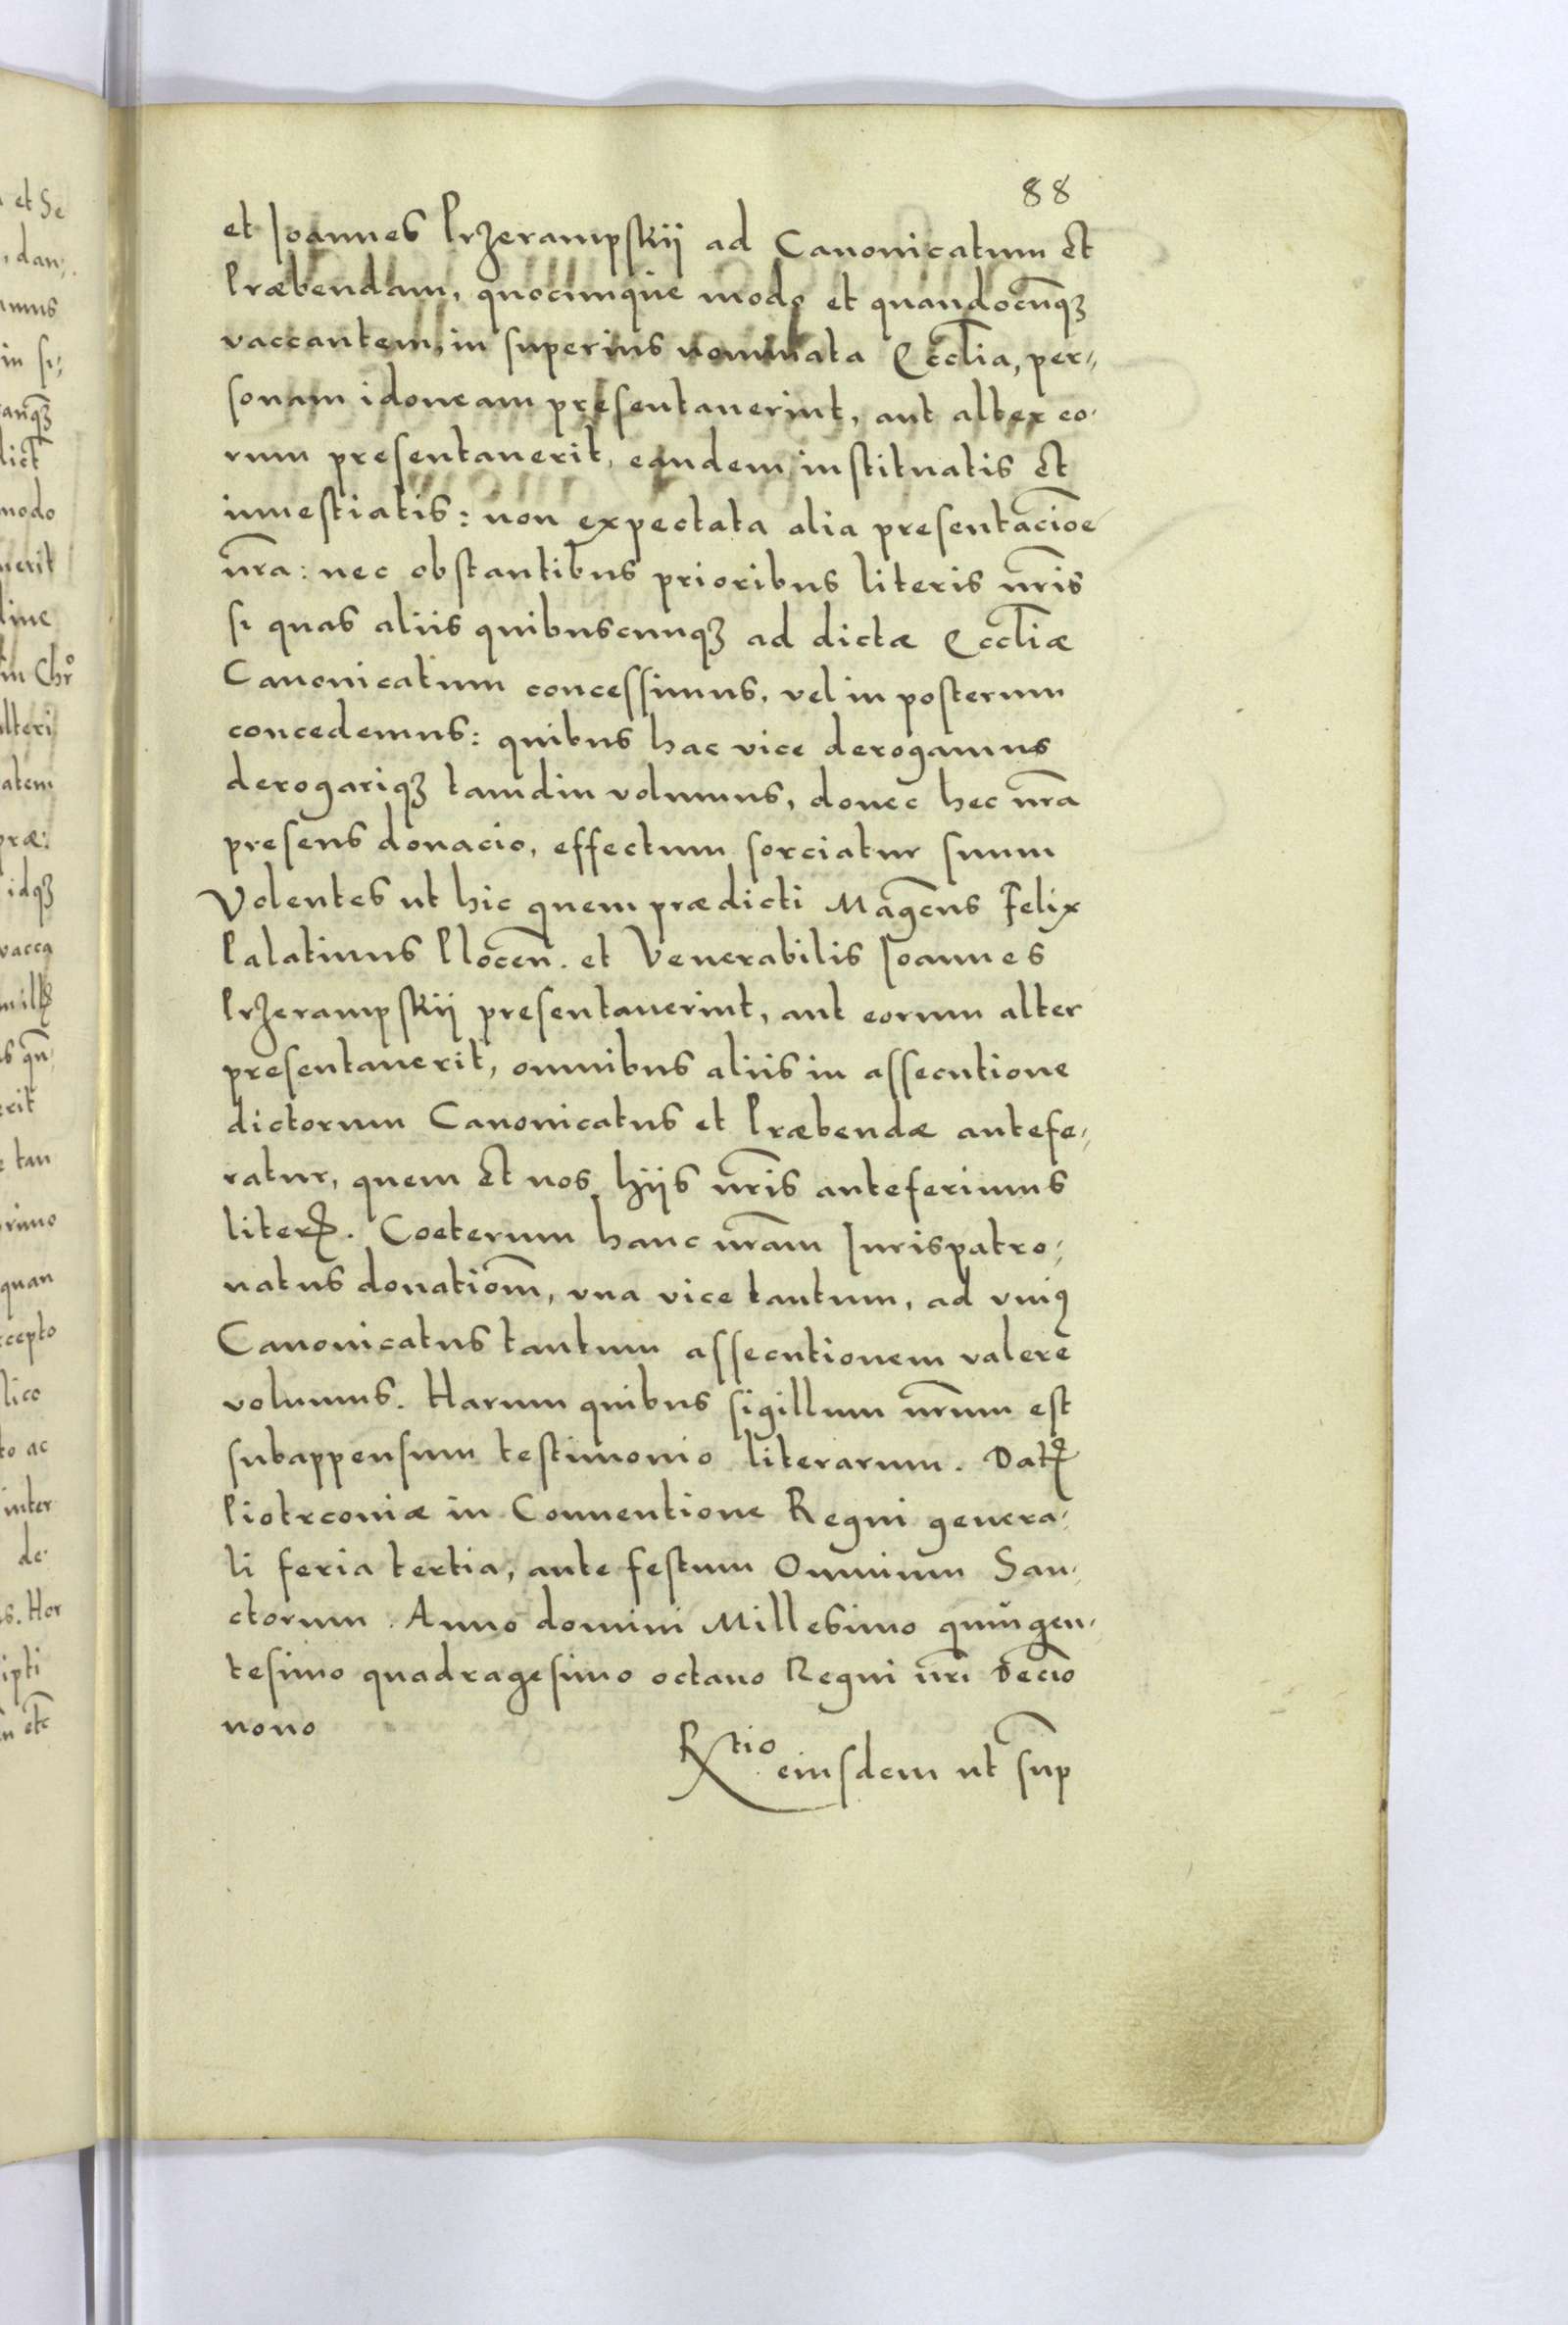 88
et Joannes Przerampskij ad Canonicatum et
Præbendam, quocumque modo et quandocūqꝫ
vaccantem, in superius nominata Eccl̄ia, per,
sonam idoneam presentauerint, aut alter eo,
rum presentauerit, eandem instituatis et
inuestiatis: non expectata alia presentaciōe
nr̄a: nec obstantibus prioribus literis nr̄is
si quas aliis quibuscunqꝫ ad dictæ Eccl̄iæ
Canonicatum concessimus, vel in posterum
concedemus: quibus hac vice derogamus
derogariqꝫ tamdiu volumus, donec hec nr̄a
presens donacio, effectum sorciatur suum
Volentes ut hic quem prædicti Magcūs Felix
Palatinus Plocēn. et Venerabilis Joannes
Przerampskij presentauerint, aut eorum alter
presentauerit, omnibus aliis in assecutione
dictorum Canonicatus et Præbendæ antefe,
ratur, quem et nos hijs nr̄is anteferimus
literꝭ. Coeterum hanc nr̄am Jurispatro,
natus donatiom̄, vna vice tantum, ad vniꝰ
Canonicatus tantum assecutionem valere
volumus. Harum quibus sigillum nr̄um est
subappensum testimonio literarum. Datꝭ
Piotrconiæ in Conuentione Regni genera,
li feria tertia, ante festum Omnium San,
ctorum. Anno domini Millesimo quingen,
tesimo quadragesimo octauo Regni nr̄i Deciō
nono
Rtio eiusdem ut sup̄